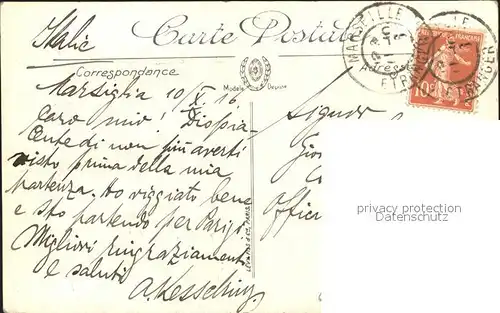 Italie
Carte Postale
Correspondance
Adresse
MARSEILLE
ETRANGER
10c
Modèle Déposé
Marsiglia 10/X. 16.
Caro mio! Dispia-
cente di non più averti
visto prima della mia
partenza. Ho viggiato bene
e sto partendo per Parigi
Migliori ringraziamenti
e saluti
A. Kesselring
Signor
Offici
privacy protection
Datenschutz